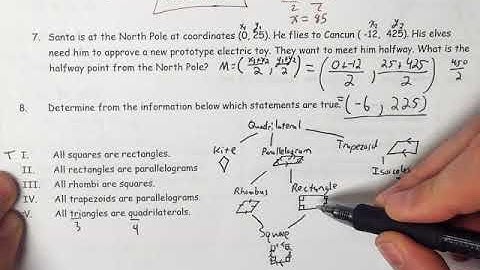 2
x = 85
7. Santa is at the North Pole at coordinates (0, 25). He flies to Cancun (-12, 425). His elves
x₁ y₁ x₂ y₂
need him to approve a new prototype electric toy. They want to meet him halfway. What is the
halfway point from the North Pole? M = (x₁+x₂/2, y₁+y₂/2) = (0+-12/2, 25+425/2) 450/2
8. Determine from the information below which statements are true. = (-6, 225)
Quadrilateral
Kite Parallelogram Trapezoid
T I. All squares are rectangles.
Isosceles
II. All rectangles are parallelograms
III. All rhombi are squares.
Rhombus Rectangle
IV. All trapezoids are parallelograms.
V. All triangles are quadrilaterals.
3 4
Square